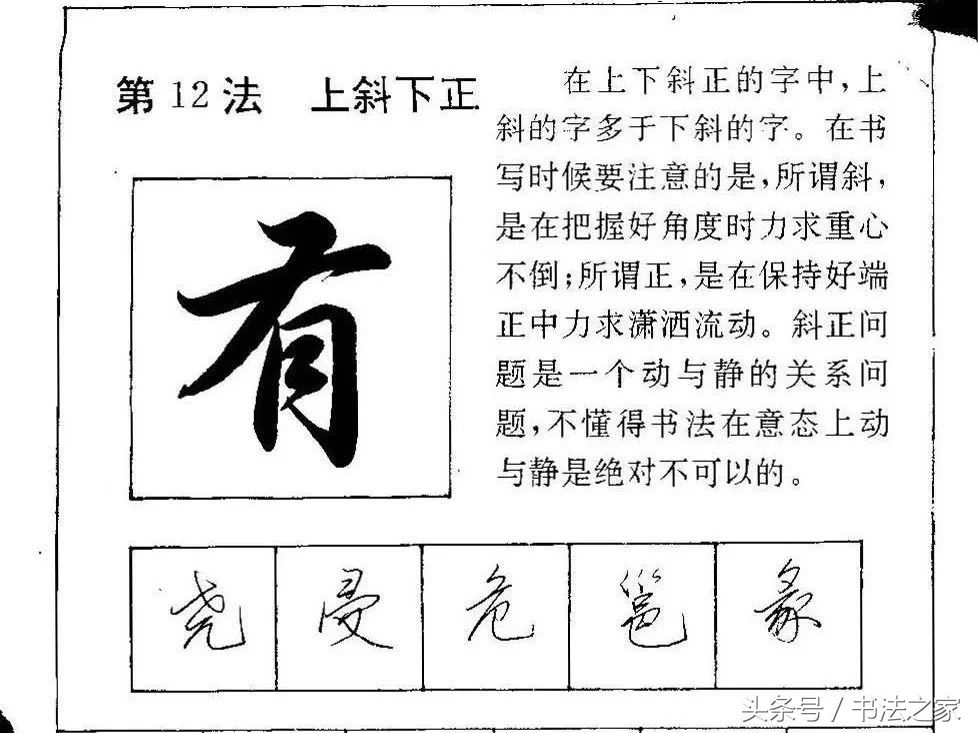 第12法 上斜下正
在上下斜正的字中,上
斜的字多于下斜的字。在书
写时候要注意的是,所谓斜,
是在把握好角度时力求重心
不倒;所谓正,是在保持好端
正中力求潇洒流动。斜正问
题是一个动与静的关系问
题,不懂得书法在意态上动
与静是绝对不可以的。
有
尧 危 邕
头条号/书法之家